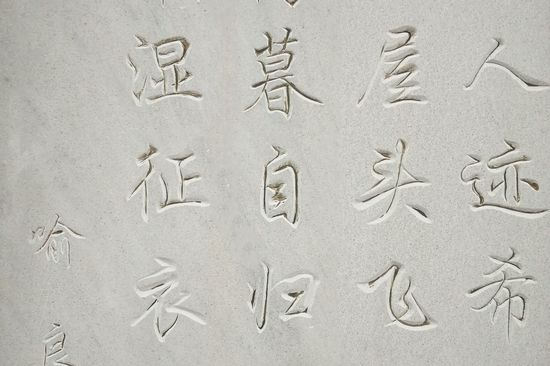 人迹希
屋头飞
暮自归
湿征衣
喻良